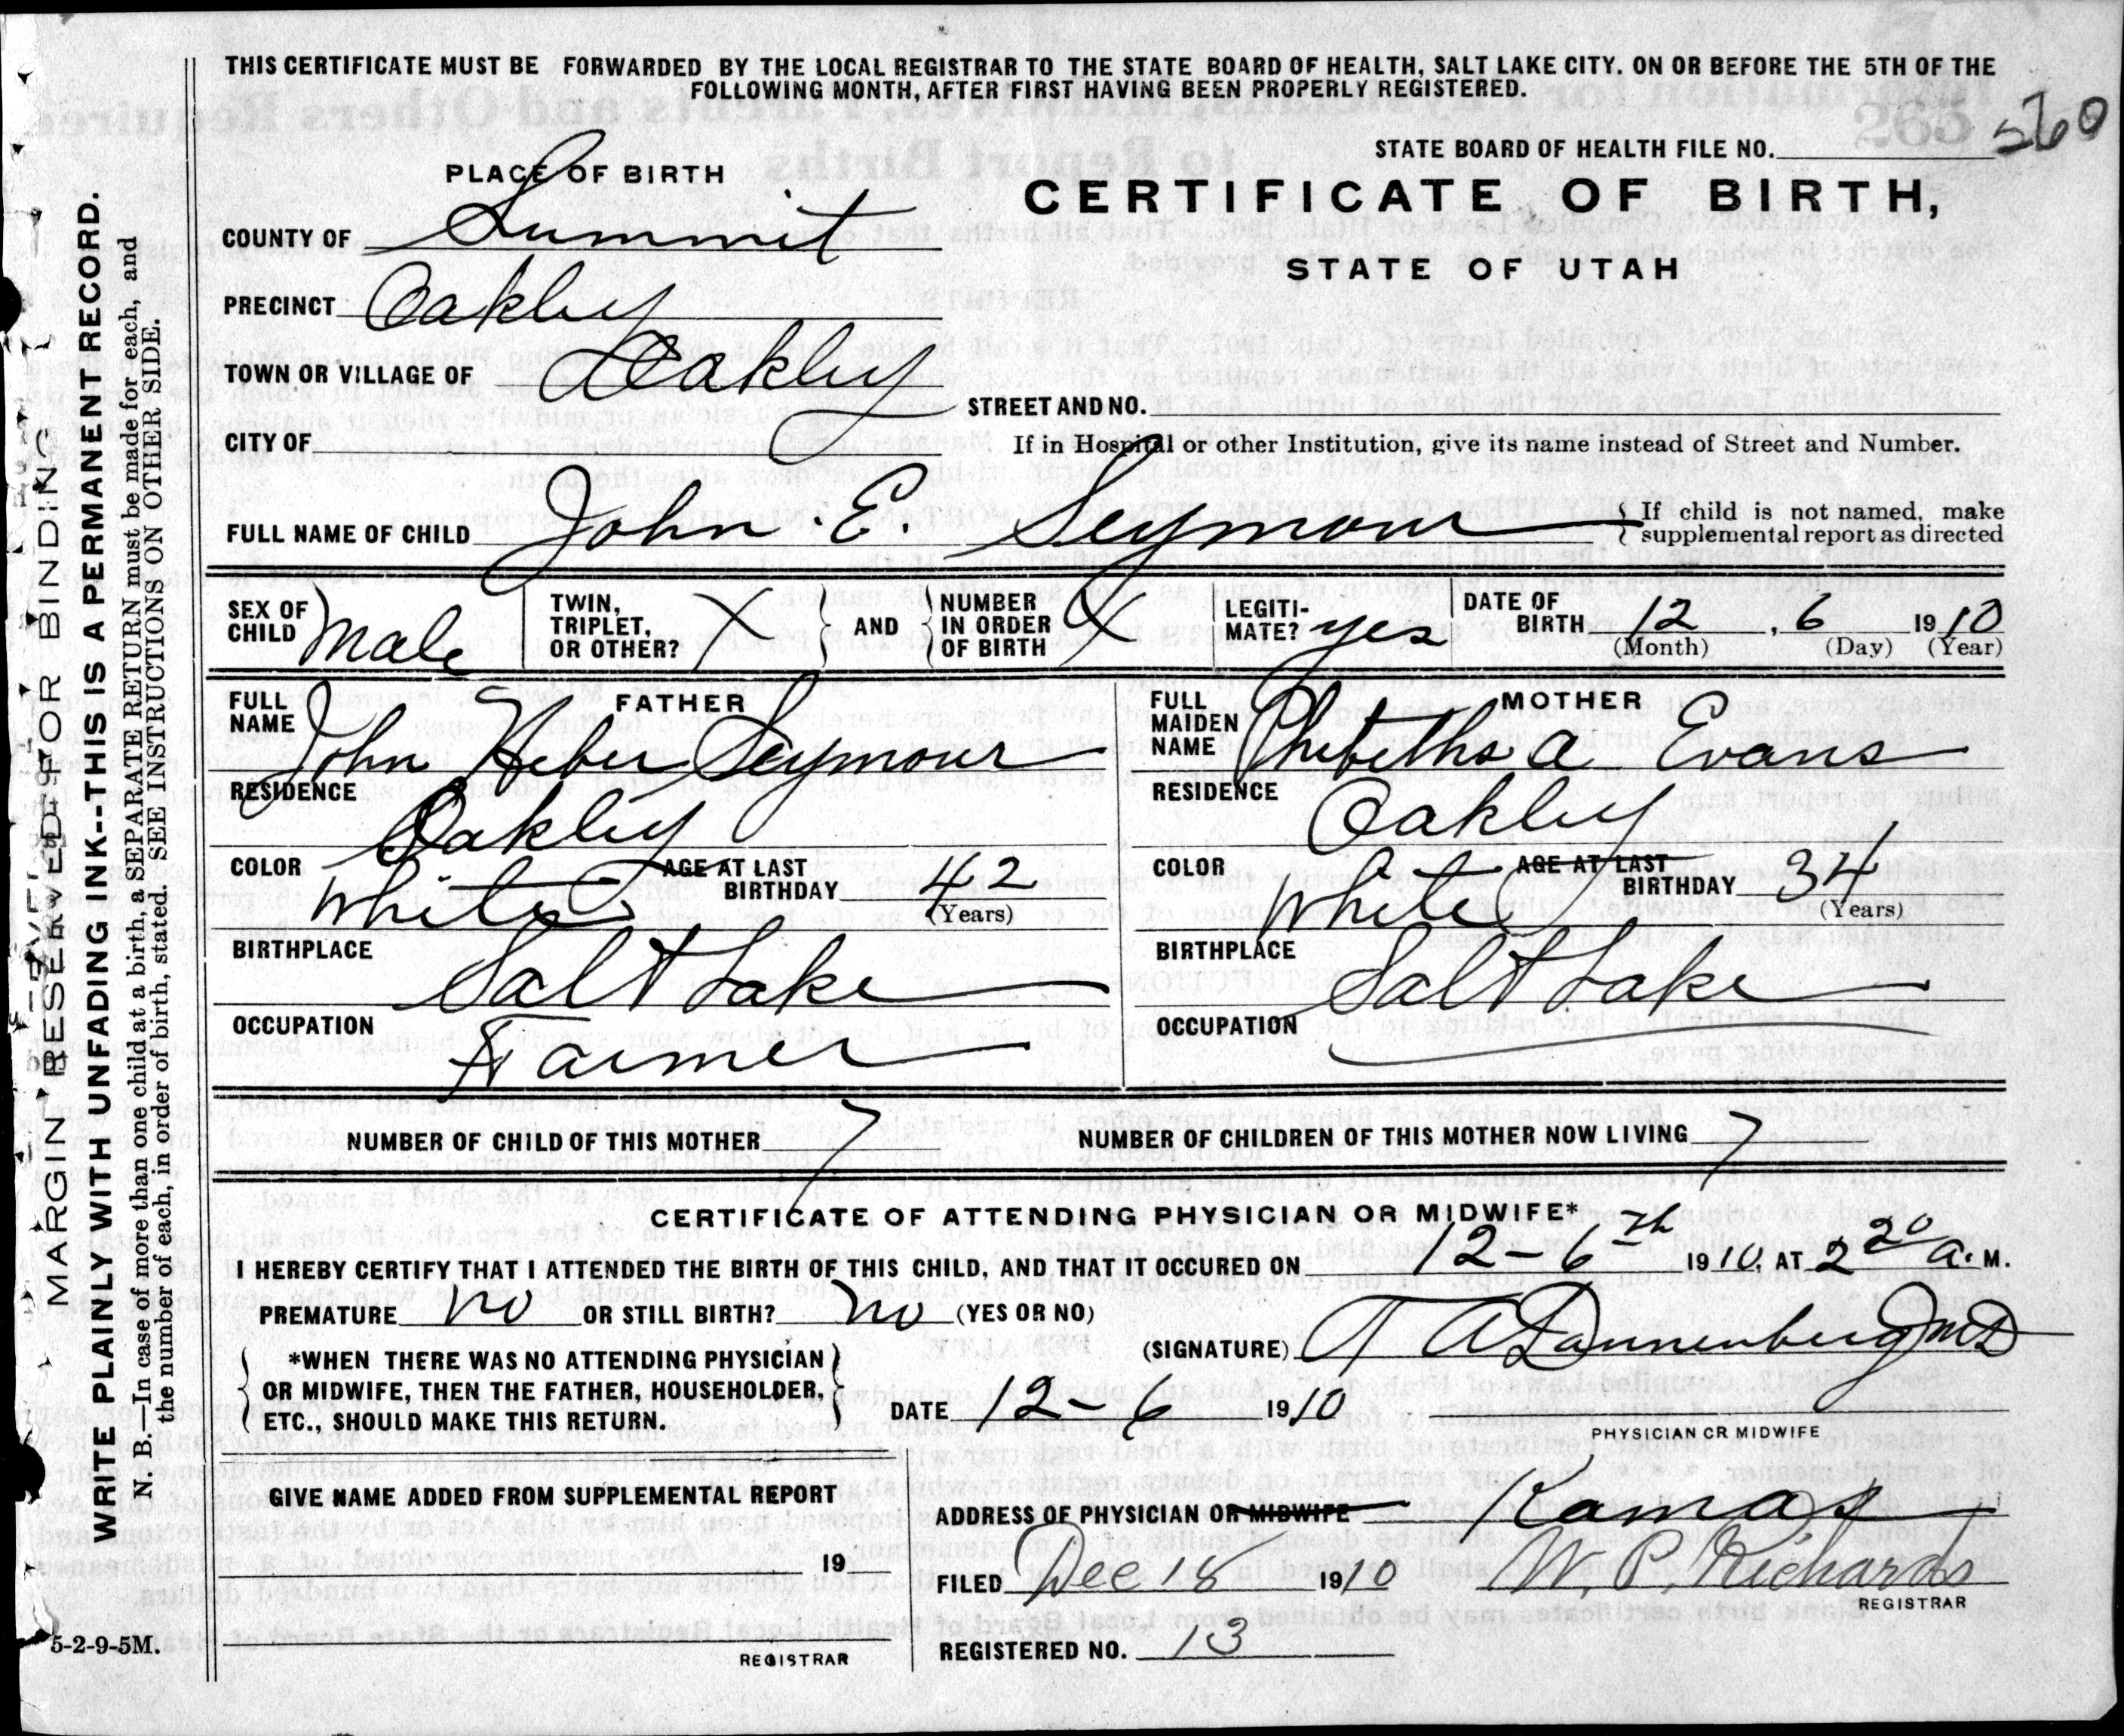 THIS CERTIFICATE MUST BE FORWARDED BY THE LOCAL REGISTRAR TO THE STATE BOARD OF HEALTH, SALT LAKE CITY. ON OR BEFORE THE 5TH OF THE
FOLLOWING MONTH, AFTER FIRST HAVING BEEN PROPERLY REGISTERED.
STATE BOARD OF HEALTH FILE NO. 260
PLACE OF BIRTH
CERTIFICATE OF BIRTH,
STATE OF UTAH
COUNTY OF Summit
PRECINCT Oakley
TOWN OR VILLAGE OF Oakley
STREET AND NO.
CITY OF
If in Hospital or other Institution, give its name instead of Street and Number.
FULL NAME OF CHILD John E. Seymour
If child is not named, make
supplemental report as directed
SEX OF CHILD Male
TWIN, TRIPLET, OR OTHER? X
AND
NUMBER IN ORDER OF BIRTH X
LEGITI-MATE? yes
DATE OF BIRTH 12, 6 1910
(Month) (Day) (Year)
FATHER
FULL NAME John Heber Seymour
RESIDENCE Oakley
COLOR White
AGE AT LAST BIRTHDAY 42
(Years)
BIRTHPLACE Salt Lake
OCCUPATION Farmer
MOTHER
FULL MAIDEN NAME Phibetha a Evans
RESIDENCE Oakley
COLOR White
AGE AT LAST BIRTHDAY 34
(Years)
BIRTHPLACE Salt Lake
OCCUPATION
NUMBER OF CHILD OF THIS MOTHER 7
NUMBER OF CHILDREN OF THIS MOTHER NOW LIVING 7
CERTIFICATE OF ATTENDING PHYSICIAN OR MIDWIFE*
I HEREBY CERTIFY THAT I ATTENDED THE BIRTH OF THIS CHILD, AND THAT IT OCCURED ON 12-6th 1910, AT 2 20 a. M.
PREMATURE no OR STILL BIRTH? no (YES OR NO)
(SIGNATURE) T A Dannenberg MD
*WHEN THERE WAS NO ATTENDING PHYSICIAN
OR MIDWIFE, THEN THE FATHER, HOUSEHOLDER,
ETC., SHOULD MAKE THIS RETURN.
DATE 12-6 1910
PHYSICIAN OR MIDWIFE
GIVE NAME ADDED FROM SUPPLEMENTAL REPORT
19
REGISTRAR
ADDRESS OF PHYSICIAN OR MIDWIFE Kamas
FILED Dec 18 1910 W. P. Richards
REGISTRAR
REGISTERED NO. 13
5-2-9-5M.
MARGIN RESERVED FOR BINDING
WRITE PLAINLY WITH UNFADING INK--THIS IS A PERMANENT RECORD.
N B.—In case of more than one child at a birth, a SEPARATE RETURN must be made for each, and
the number of each, in order of birth, stated. SEE INSTRUCTIONS ON OTHER SIDE.